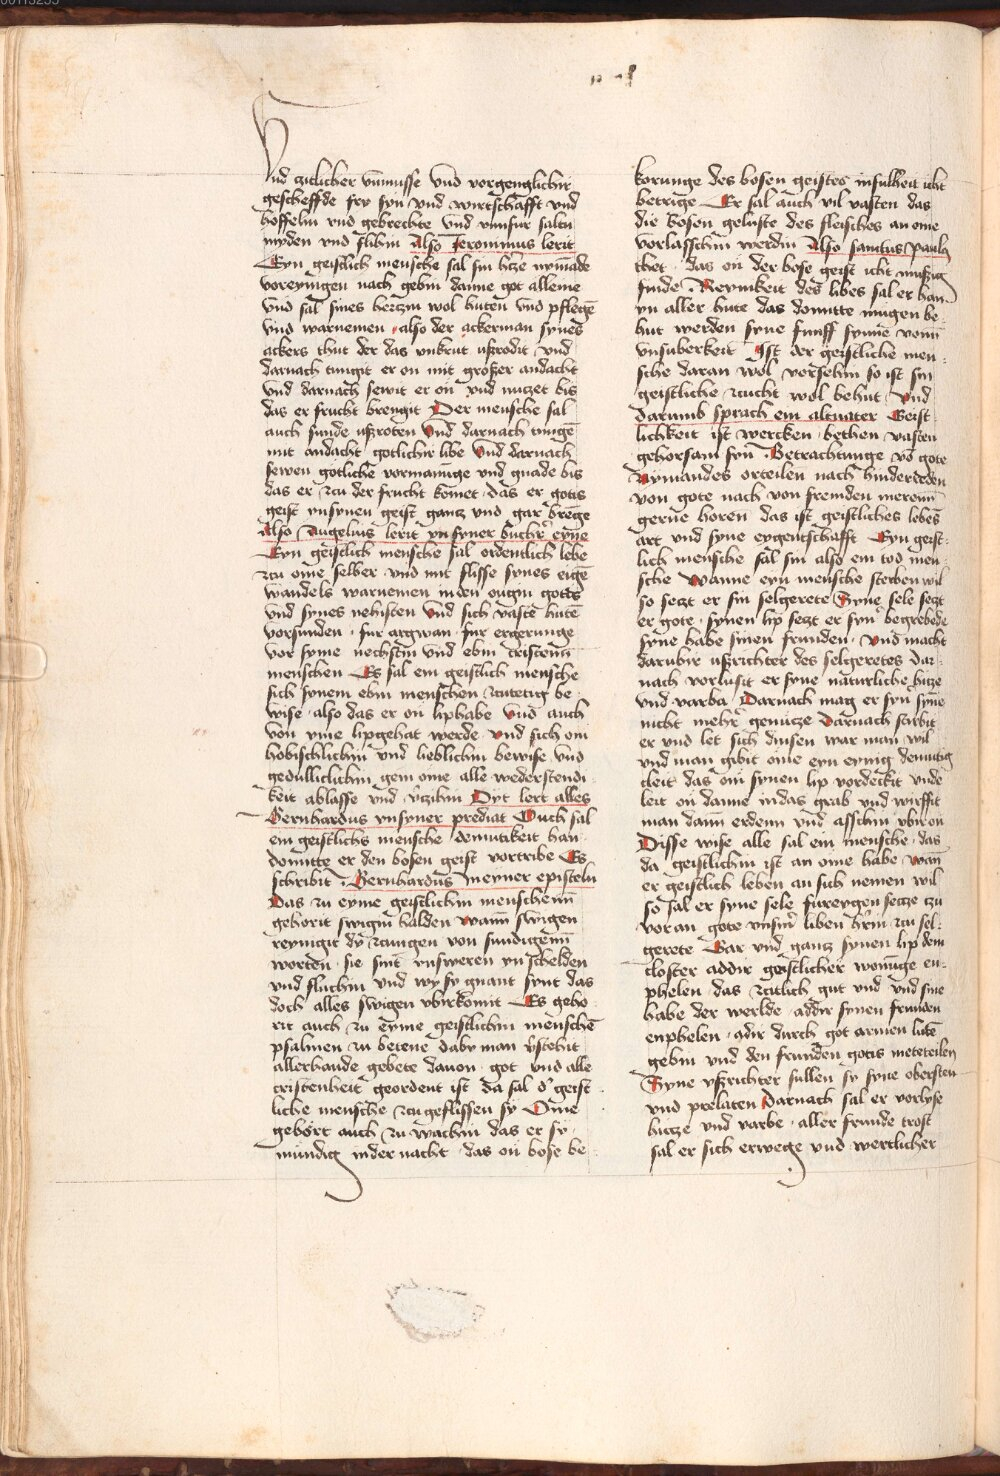 00113255
Und zitlicher unmusse und vorgenglichir
gescheffde fry syn und wirtschafft und
hoffelin und gebrechte und unnfur saltu
myden und flihin Also Jeronimus lerit
Eyn geistlich mensche sal sin hertze nymande
voreynigen nach gebin danne got alleine
und sal sines hertzin wol huten und pflegē
und warnemen also der ackerman synes
ackers thut der das unkrut ußrodit und
darnach tungit er on mit großer andacht
und darnach sewit er on und nutzet bis
das er frucht brengit Der mensche sal
auch sunde ußroten Und darnach tungē
mit andacht gotlichir libe Und darnach
sewen gotliche vormanūge und gnade bis
das er zcu der frucht komet das er gotis
geist ynsynen geist gantz und gar brēge
Also Augelius lerit yn syner buchir eyme
Eyn geistlich mensche sal ordentlich lebē
zcu ome selber und mit flisse synes eigē
wandels warnemen inden ougin gottis
und synes nehisten Und sich vaste hutē
vorsunden fur argwan fur ergerunge
vor syme nechstin und ebin cristenin
menschen Es sal ein geistlich mensche
sich synem ebin menschen zcutetig be
wise also das er on liphabe Und auch
von yme lipgehat werde und sich om
hobischlichin und lieblichin bewise und
gedulliclichin gein ome alle wederstendi
keit ablasse und v̄czihin Dyt lert alles
Bernhardus ynsyner prediat Ouch sal
ein geistlichs mensche demutikeit han
domitte er den bosen geist vortribe Es
schribit Bernhardus meyner episteln
Das zu eyme geistlichin menschenn
geborit swigin halden wann swigen
reynigit dy zcungen von sundigenn
worten sie sint ynsweren yn schelden
und fluchin und wy sy gnant synt das
doch alles swigen ubirkomit Es gebo
rit auch zu eyme geistlichin menschē
psalmen zu betene daby man v̄stehit
allerhande gebete davon got und alle
cristenheit geordent ist da sal d' geist
liche mensche zcugeflissen sy Ome
gehort auch zu wachin das er sy
mundig inder nacht das on bose be
korunge des bosen geistes insulheit icht
betrige Er sal auch vil vasten das
die bosen geluste des fleisches an ome
vorlasschin werdin Also sanctus paulus
thet das on der bose geist icht mußig
finde Reynikeit des libes sal er han
yn aller hute das domitte mugen be
hut werden syne funff synne vonn
unsuberkeit Ist der geistliche men
sche daran wol vorsehin so ist sin
geistliche zcucht wol behut Und
darumb sprach ein altvater Geist
lichkeit ist wercken bethen vasten
gehorsam syn Betrachtunge vō gote
Nymandes orteilen nach hinderreden
von gote nach von fremden merenn
gerne horen das ist geistliches lebēs
art und syne eygentschafft Eyn geist
lich mensche sal sin also ein tod men
sche Wanne eyn mensche sterben wil
so setzt er sin selgerete Syne sele setzt
er gote synen lip setzt er syn begrebede
syne habe sinen frunden Und macht
darubir ußrichter des selgeretes Dar
nach vorlusit er syne naturliche hitze
und varbe Darnach mag er syn syne
nicht mehir genutze Darnach stirbit
er und let sich dinsen war man wil
und man gibit ome eyn eynig demutig
cleit das om synen lip vordeckit unde
leit on danne indas grab und wirffit
man dann erdenn und asschin ubir on
Disse wise alle sal ein mensche das
da geistlichin ist an ome habe wan
er geistlich leben an sich nemen wil
so sal er syne sele fureygen setze tzu
voran gote unsirn liben hrn zcu sel
gerete Gar und gantz synen lip dem
closter addir geistlicher wonūge en
phelen das zcitlich gut und und sine
habe der werlde addir synen frunden
enphelen adir durch got armen lutē
gebin und den frunden gotis meteteilen
Syne ußrichter sullen sy syne obersten
und prelaten Darnach sal er vorlyse
hitze und varbe aller frunde trost
sal er sich erwege und wertlicher